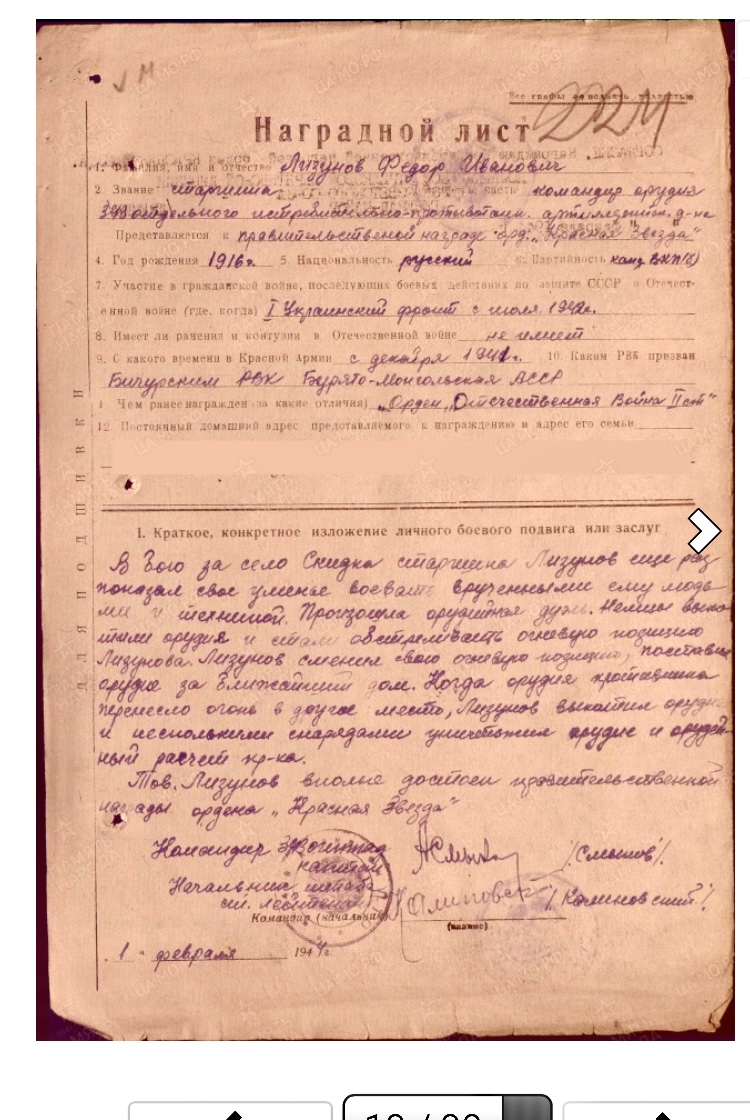 Все графы заполнять полностью
224
Наградной лист
1. Фамилия, имя и отчество Лизунов Федор Иванович
2 Звание старшина часть командир орудия
отдельного истребительно-противотанк. артиллерийск. д-на
Представляется к правительственой награде орд. „Красная Звезда"
4. Год рождения 1916г. 5. Национальность русский 6. Партийность канд ВКП(б)
7. Участие в гражданской войне, последующих боевых действиях по защите СССР и Отечест-
енной войне (где, когда) I Украинский фронт с июля 1942г.
8. Имеет ли ранения и контузии в Отечественной войне не имеет
9. С какого времени в Красной Армии с декабря 1941г. 10. Каким РВК призван
Бичурским РВК Бурято-Монгольская АССР
1 Чем ранее награжден (за какие отличия) „Орден „Отечественная Война II ст"
12. Постоянный домашний адрес представляемого к награждению и адрес его семьи
ДЛЯ ПОДШИВКИ
1. Краткое, конкретное изложение личного боевого подвига или заслуг
В бою за село Скидка старшина Лизунов еще раз
показал свое уменье воевать врученными ему людь-
ми и техникой. Произошла орудийная дуэль. Немцы выка-
тили орудия и стали обстреливать огневую позицию
Лизунова. Лизунов сменил свою огневую позицию, поставив
орудие за ближайший дом. Когда орудия противника
перенесло огонь в другое место, Лизунов выкатил орудие
и несколькими снарядами уничтожил орудие и орудей-
ный расчет пр-ка.
Тов. Лизунов вполне достоен правительственной
награды ордена „Красная Звезда"
Командир
капитан /Смыков/
Начальник штаба
ст. лейтенант /Калиновский/
Командир (начальник)
(подпись)
1 " февраля 1944г.